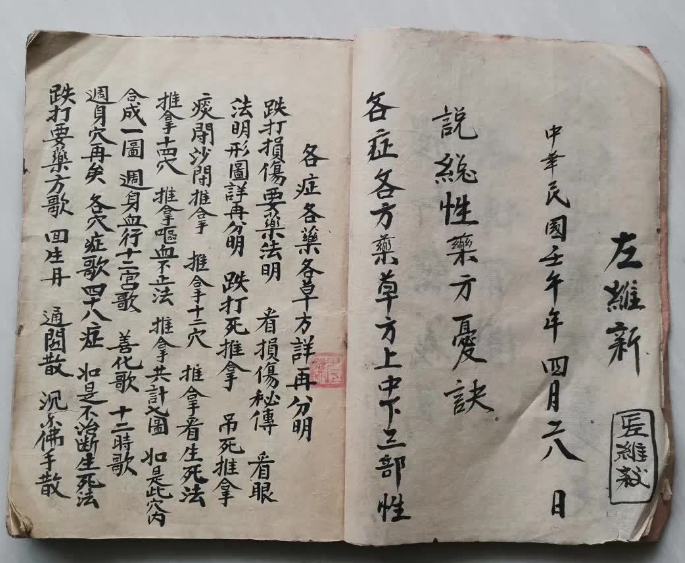 左維新
中華民國壬午年四月廿八日
說總性藥方憂訣
各症各方藥草方上中下三部性
各症各藥各草方詳再分明
跌打損傷要藥法明 看損傷秘傳 看眼
法明形圖詳再分明 跌打死推拿 吊死推拿
痰閉沙閉推拿 推拿十二穴 推拿看生死法
推拿十四穴 推拿嘔血不止法 推拿共計七圖 如是此穴內
合成一圖 週身血行十二宮歌 善化歌 十二時歌
週身穴再矣 各穴症歌四十八症 如是不治斷生死法
跌打要藥方歌 回生丹 通關散 沉香佛手散